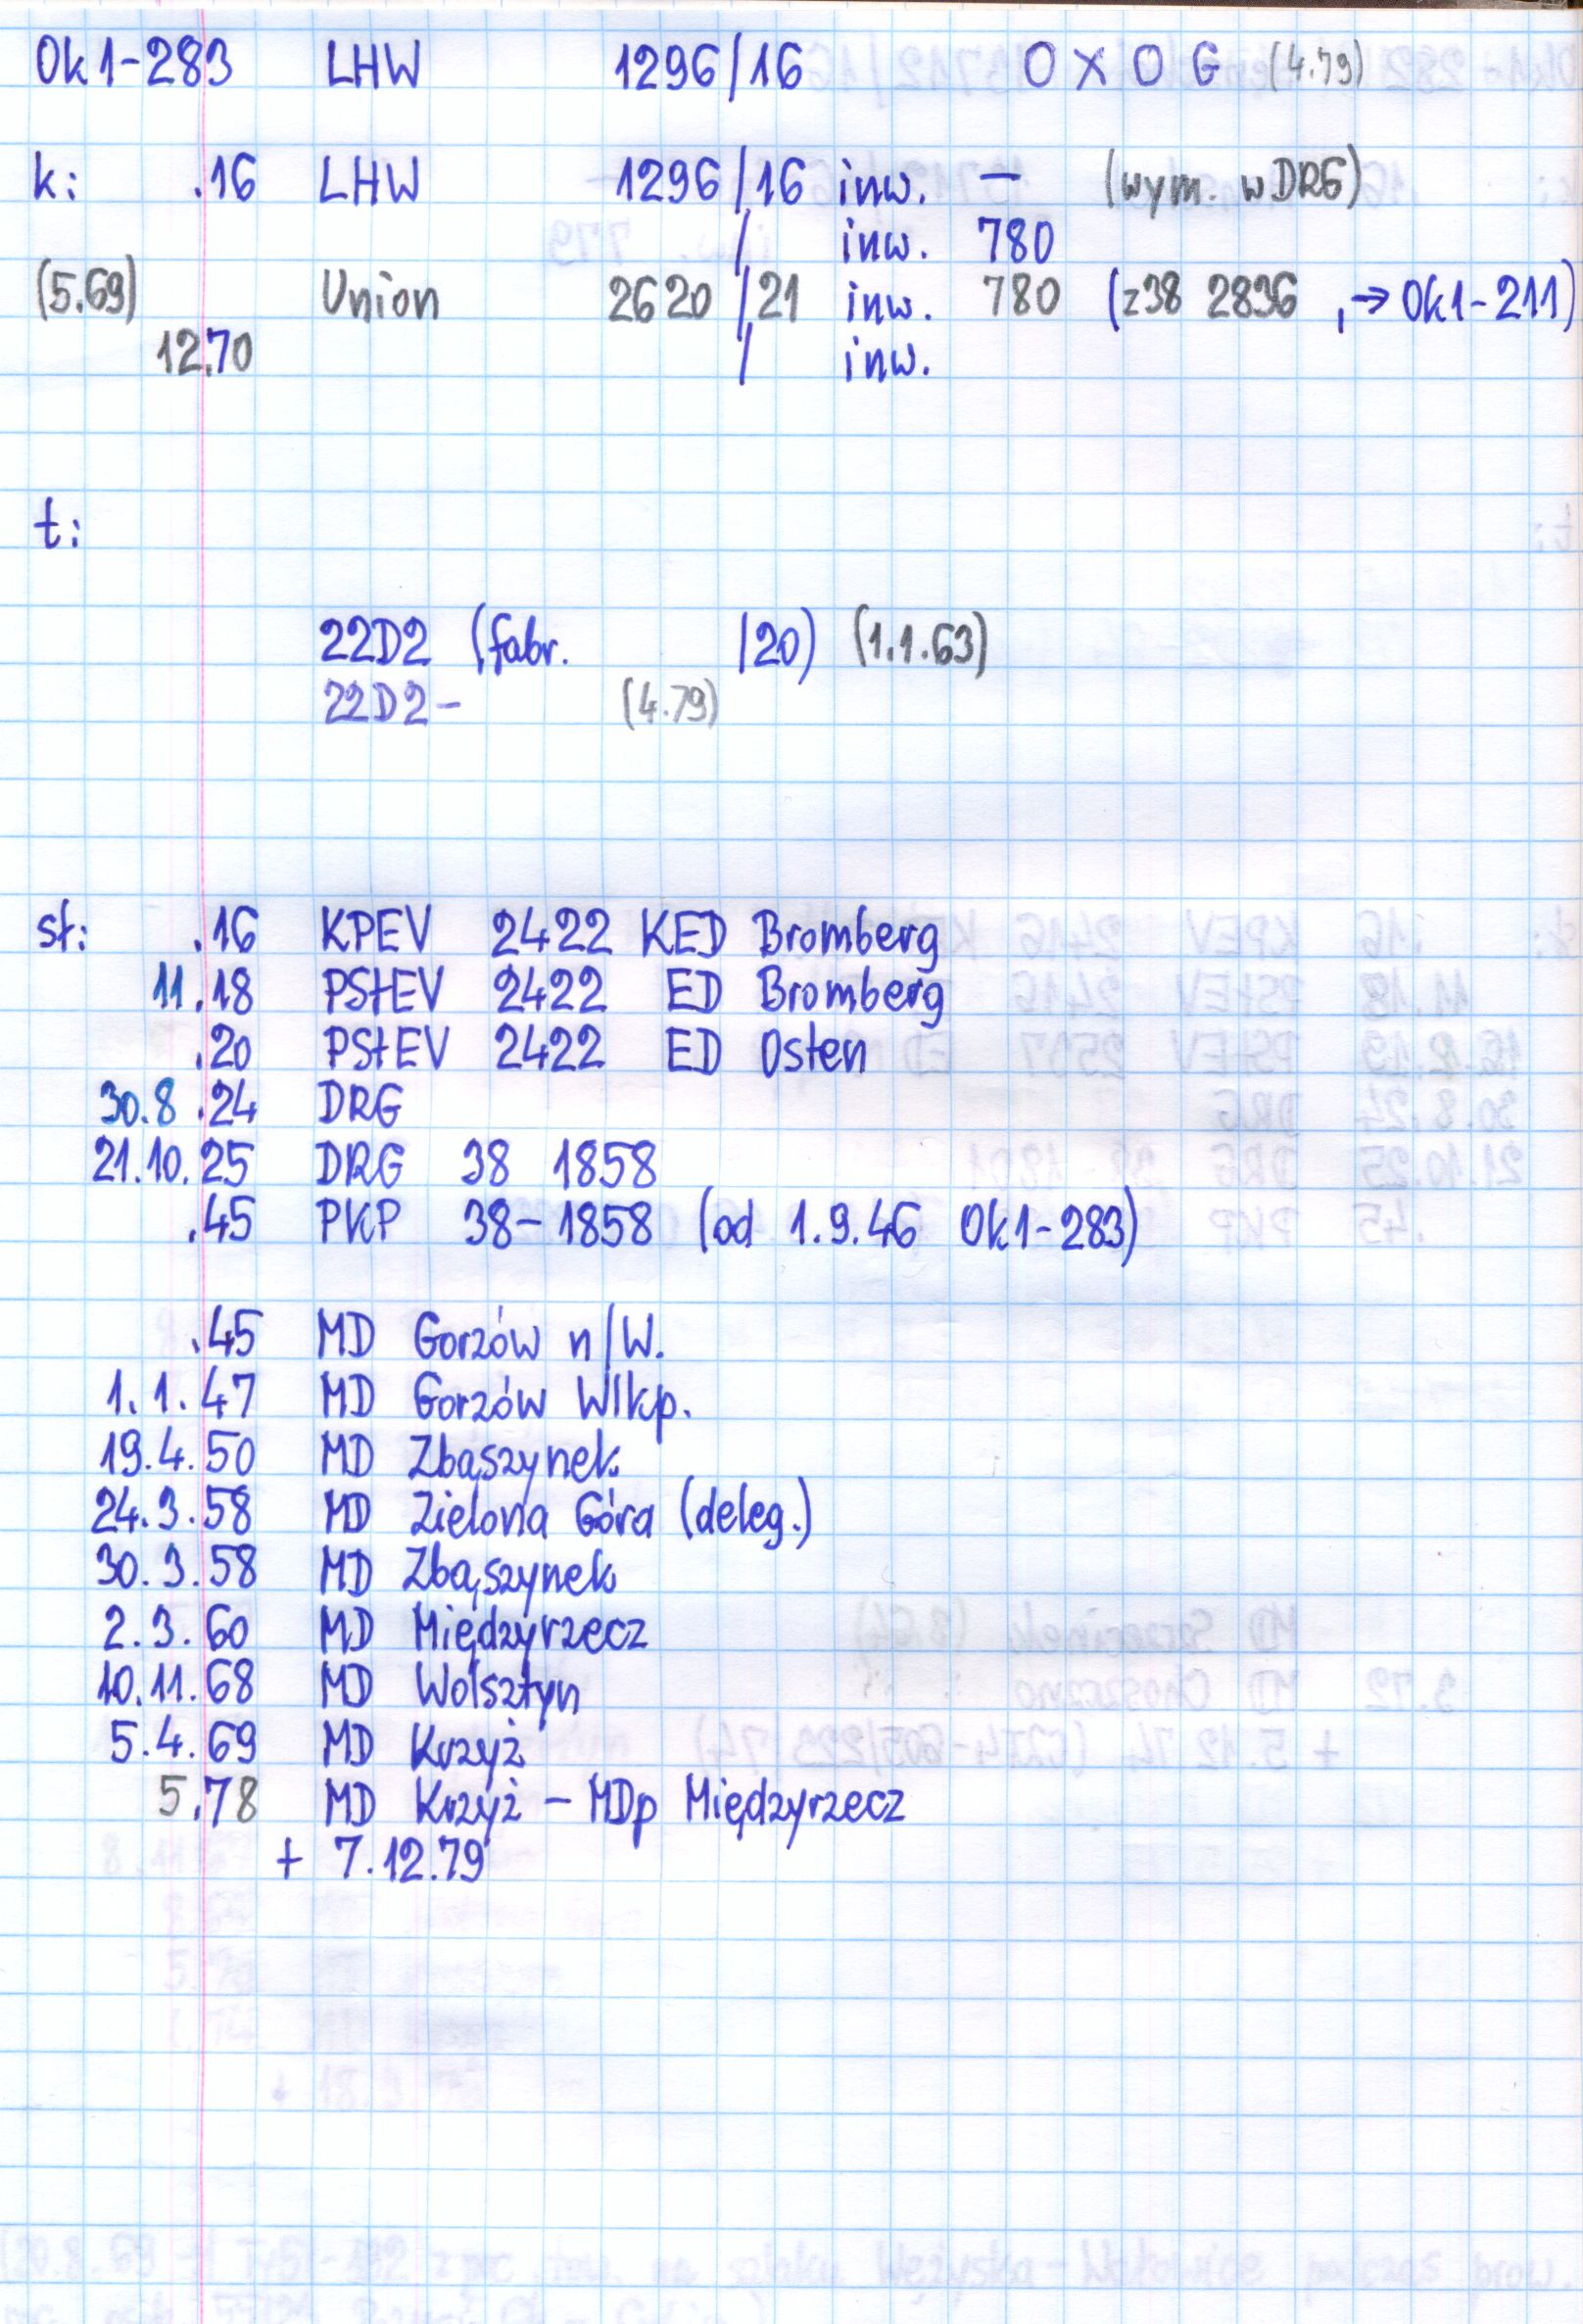 Ok1-283 LHW 1296/16 O X O G (4.79)
k: .16 LHW 1296/16 inw. – (wym. w DRG)
/ inw. 780
(5.69) Union 2620/21 inw. 780 (z 38 2836, → Ok1-211)
12.70 / inw.
t:
22D2 (fabr. /20) (1.1.63)
22D2- (4.79)
st: .16 KPEV 2422 KED Bromberg
11.18 PStEV 2422 ED Bromberg
.20 PStEV 2422 ED Osten
30.8.24 DRG
21.10.25 DRG 38 1858
.45 PKP 38-1858 (od 1.9.46 Ok1-283)
.45 MD Gorzów n/W.
1.1.47 MD Gorzów Wlkp.
19.4.50 MD Zbąszynek
24.3.58 MD Zielona Góra (deleg.)
30.3.58 MD Zbąszynek
2.3.60 MD Międzyrzecz
10.11.68 MD Wolsztyn
5.4.69 MD Krzyż
5.78 MD Krzyż – MDp Międzyrzecz
+ 7.12.79